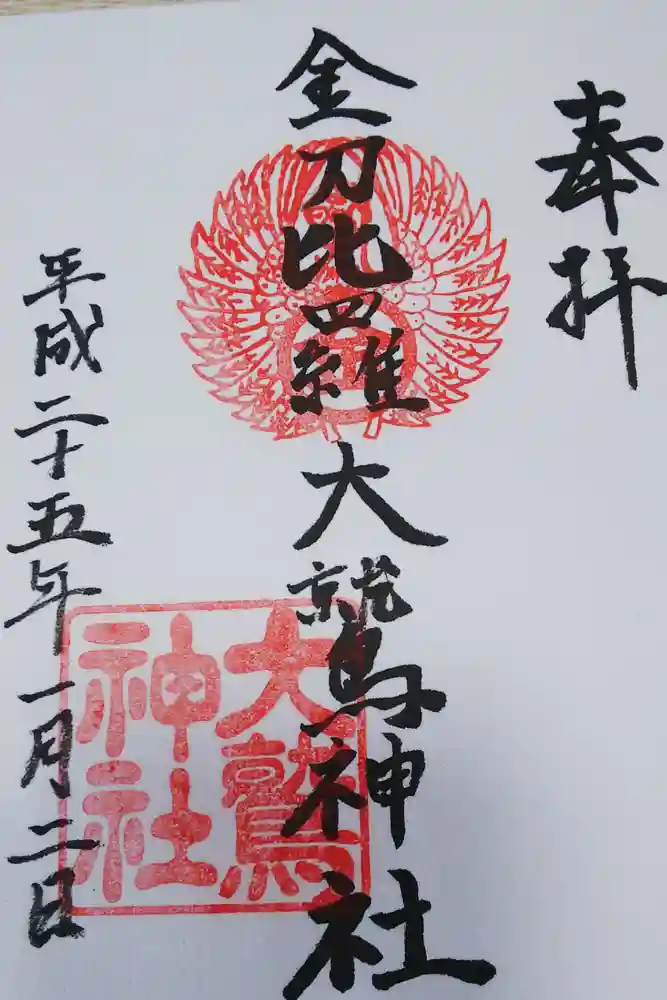 奉拝
金刀比羅大鷲神社
平成二十五年一月二日
大鷲
神社